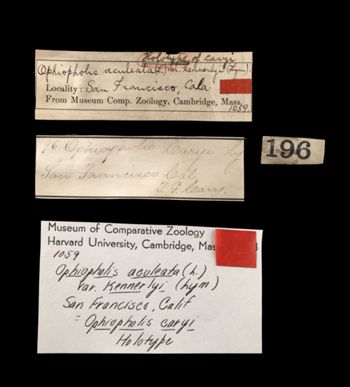 Holotype of caryi
Ophiopholis aculeata (L.) var. Kennerlyi (Lym).
Locality: San Francisco, Cala
From Museum Comp. Zoology, Cambridge, Mass.
1059.
76 Ophiopholis Caryi Ly
San Francisco Cal.
T. G. Cary.
196
Museum of Comparative Zoology
Harvard University, Cambridge, Mas
1059
Ophiopholis aculeata (L.)
var. Kennerlyi (Lym)
San Francisco, Calif
= Ophiopholis caryi
Holotype